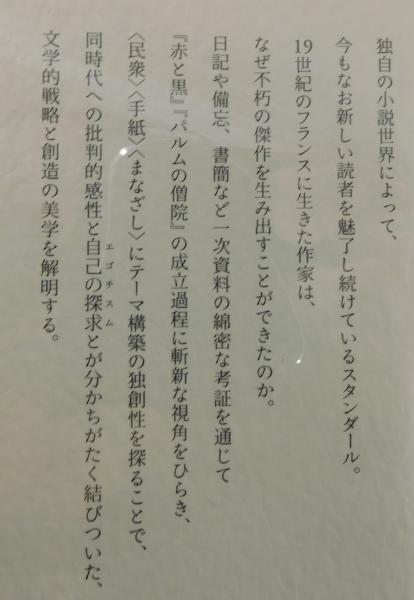 独自の小説世界によって、
今もなお新しい読者を魅了し続けているスタンダール。
19世紀のフランスに生きた作家は、
なぜ不朽の傑作を生み出すことができたのか。
日記や備忘、書簡など一次資料の綿密な考証を通じて
『赤と黒』『パルムの僧院』の成立過程に斬新な視角をひらき、
〈民衆〉〈手紙〉〈まなざし〉にテーマ構築の独創性を探ることで、
同時代への批判的感性と自己の探求とが分かちがたく結びついた、
エゴチスム
文学的戦略と創造の美学を解明する。